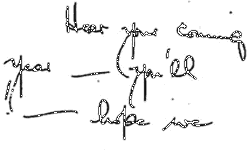 Hear you coming
year — (you'll
" — hope we